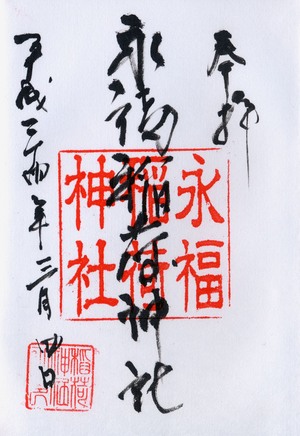 奉拝
永福稲荷神社
永福
稲荷
神社
平成二 年三月四日
稲荷
神社